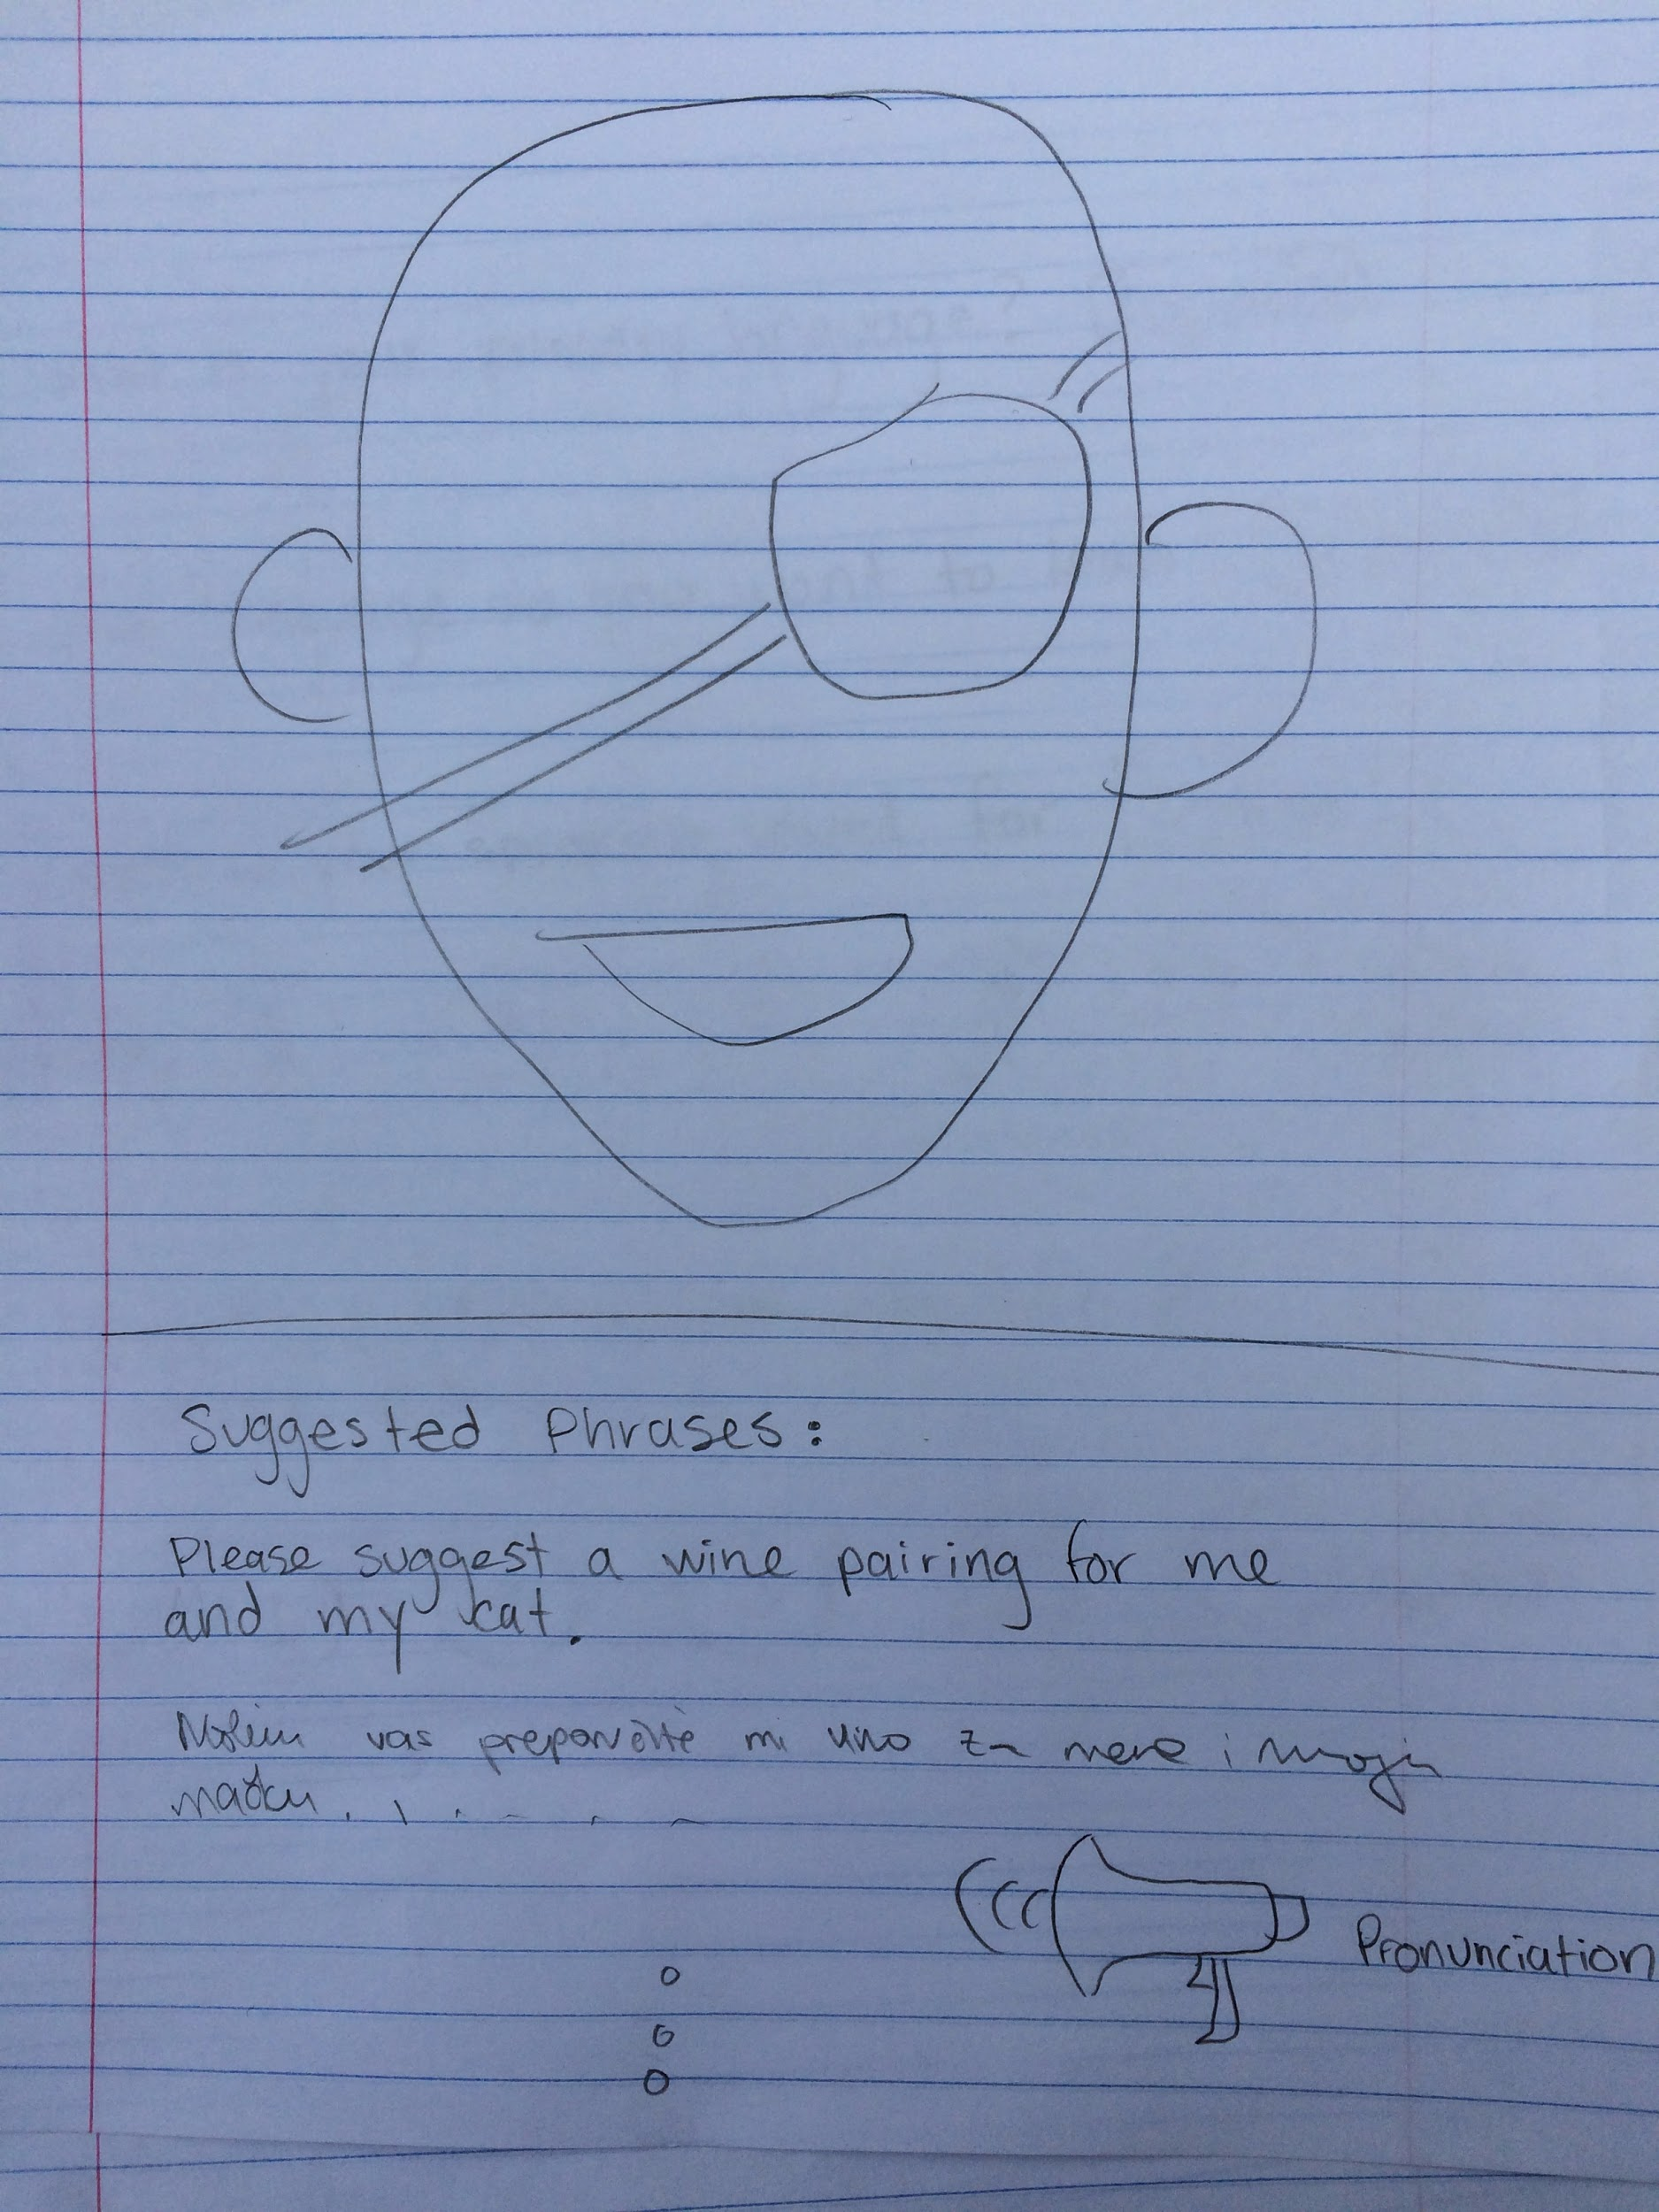 Suggested Phrases:
Please suggest a wine pairing for me
and my cat.
Molim vas mi vino za mene i moju
mačku.
Pronunciation